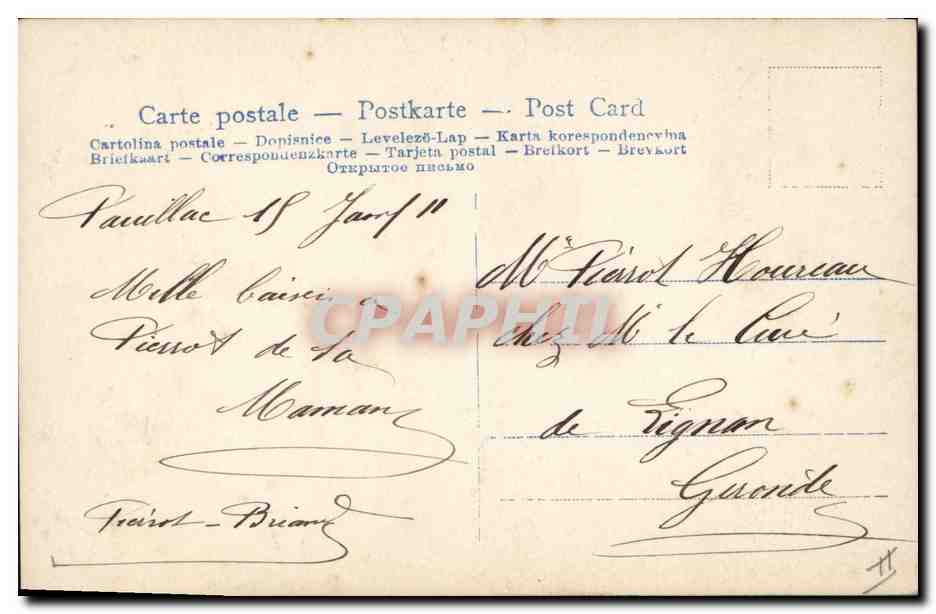 Carte postale — Postkarte — Post Card
Cartolina postale — Dopisnice — Levelező-Lap — Karta korespondencyjna
Briefkaart — Correspondenzkarte — Tarjeta postal — Brefkort — Brevkort
Открытое письмо
Pauillac 15 Janv 11
Mille baisers a
Pierrot de sa
Maman
Pierrot - Briand
Mr Pierrot Houreau
chez M le Curé
de Lignan
Gironde
CPAPHIL